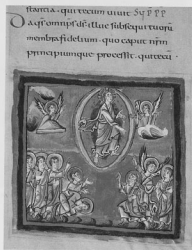 stantia · qui tecum vivit
Da qs omnips ds illuc subsequi tuorum
membra fidelium · quo caput nrm
principiumque processit · qui tecu